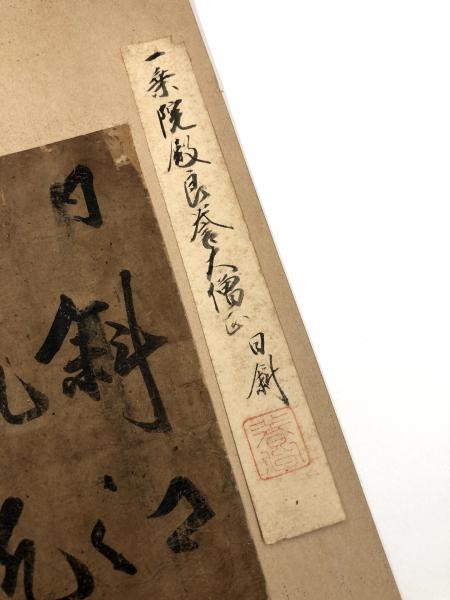 一乗院殿良誉大僧正 日斜
日斜江